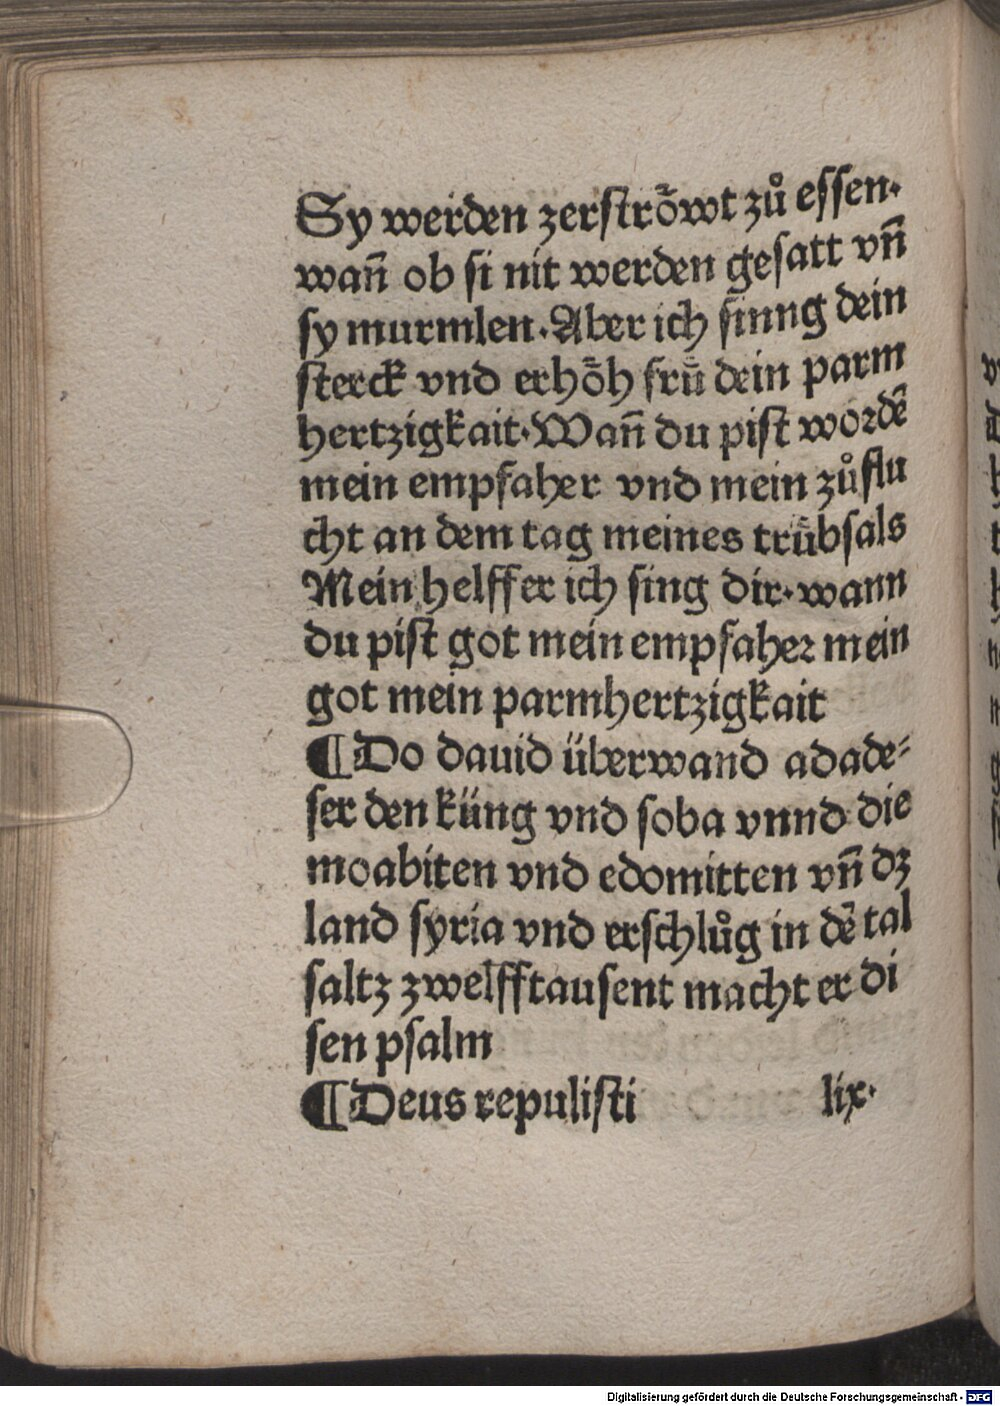 Sy werden zerströwt zů essen·
wañ ob si nit werden gesatt vñ
sy murmlen·Aber ich sinng dein
sterck vnd erhöh frü dein parm
hertzigkait·Wañ du pist wordē
mein empfaher vnd mein zůflu
cht an dem tag meines trübsals
Mein helffer ich sing dir·wann
du pist got mein empfaher mein
got mein parmhertzigkait
¶Do dauid überwand adade⸗
ser den küng vnd soba vnnd die
moabiten vnd edomitten vñ dz
land syria vnd erschlůg in dē tal
saltz zwelfftausent macht er di
sen psalm
¶Deus repulisti lix·
Digitalisierung gefördert durch die Deutsche Forschungsgemeinschaft - DFG